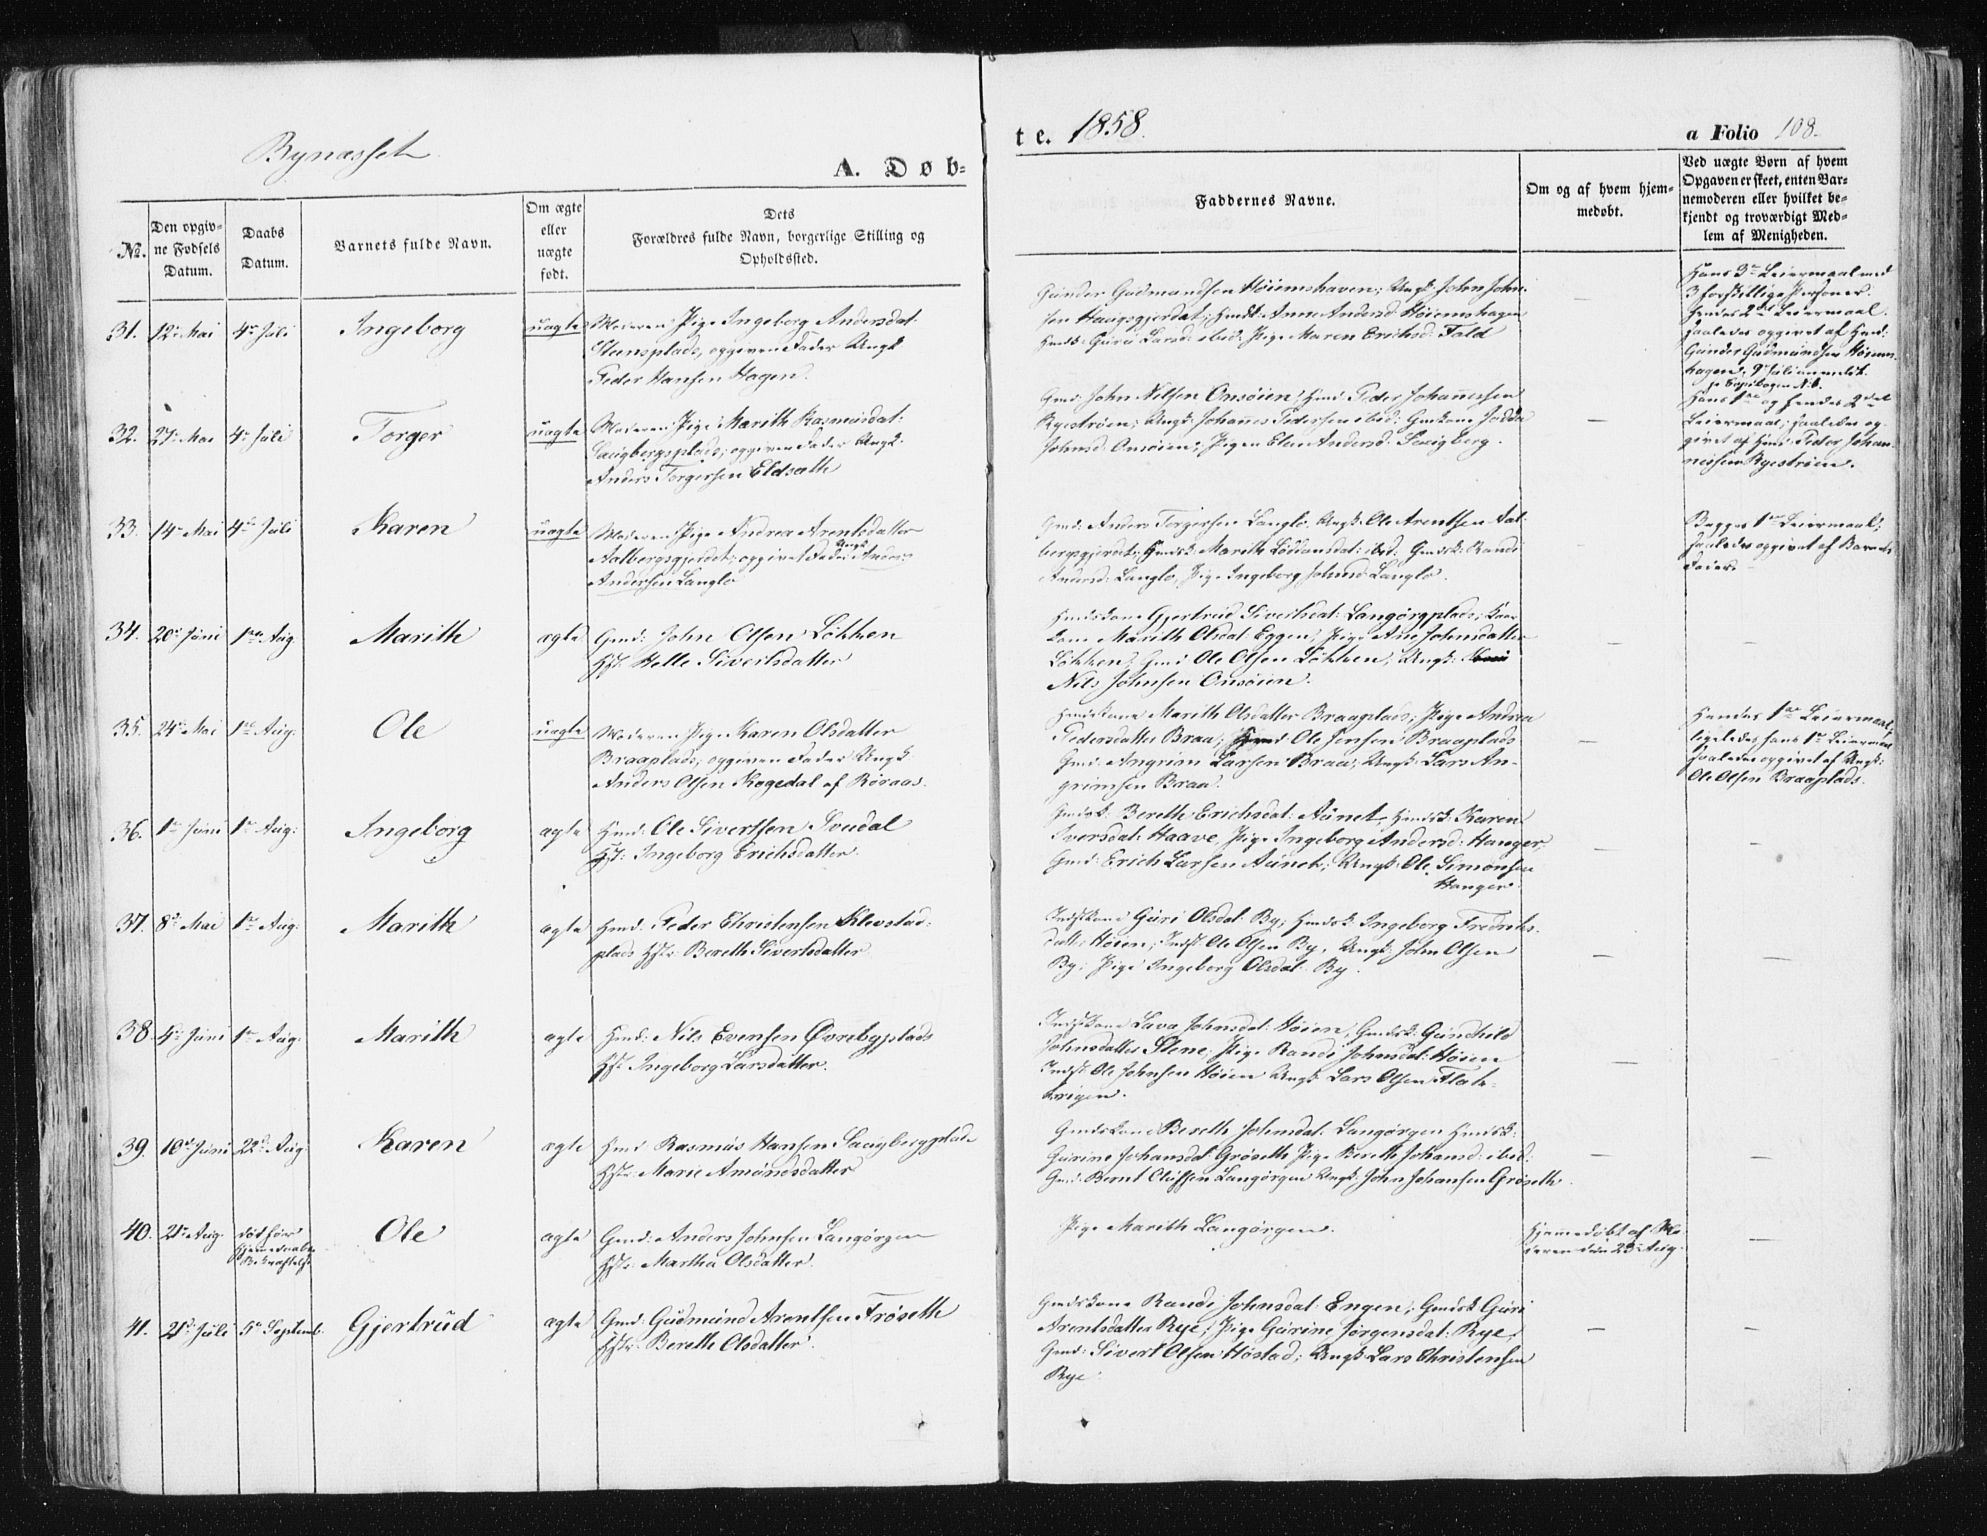 Bynæsset
A. Døb-
te. 1858.
a Folio 108.
No.
Den opgiv-
ne Fødsels
Datum.
Daabs
Datum.
Barnets fulde Navn.
Om ægte
eller
uægte
født.
Dets
Forældres fulde Navn, borgerlige Stilling og
Opholdssted.
Faddernes Navne.
Om og af hvem hjem-
medøbt.
Ved uægte Børn af hvem
Opgaven er skeet, enten Bar-
nemoderen eller hvilket be-
kjendt og troværdigt Med-
lem af Menigheden.
31. 12te Mai 4de Juli Ingeborg uægte Moderen Pige Ingeborg Andersdat:
Steensplads, opgiven Fader Ungk
Peder Hansen Hagen.
Gunder Gudmundsen Høiemshaven; Ungk. John John-
sen Haugsgjerdet; Hmdk: Anne Andersd: Høiemshagen
Hmdk: Guru Larsd: ibid: Pige Maren Erichsd: Fald
—
Hans 3die Leiermaal med
3 forskellige Personer.
Hendes 2det Leiermaal.
Saaledes opgivet af Hmd:
Gunder Gudmundsen Høiem-
hagen;
32. 27de Mai 4de Juli Torger uægte Moderen Pige Marith Rasmusdat:
Saugbergsplads; opgiven Fader Ungk.
Anders Torgersen Eldsæth
Gmd. John Nilsen Onsøien; Hmd Peder Johannessen
Ryestrøien; Ungk. Johannes Pedersen ibid; Gmkone
Johnsd. Onsøien; Pigen Elen Andersd. Saugberg.
—
Hans 1ste og hendes 2det
Leiermaal; saaledes op-
givet af Hmd: Peder Johan-
nessen Ryestrøien.
33. 14de Mai 4de Juli Karen uægte Moderen Pige Andrea Arentsdatter
Aalbergsgjerdet; opgiven Fader Ungk Anders
Andersen Langlo
Gmd: Anders Torgersen Langlo. Ungk: Ole Arentsen Aal-
bergsgjerdet; Hmdsk: Marith Loddansdat: ibid: Gmdsk: Randi
Andersd: Langlo, Pige Ingeborg Johnsd Langlo.
—
Begges 1ste Leiermaal;
saaledes opgivet af Barnets
Fader.
34. 20de Juni 1ste Aug. Marith ægte Gmd: John Olsen Løkken
Hst. Helle Sivertsdatter
Hmdskone Gjertrud Sivertsdat: Langørgplads; Kaar
kone Marith Olsdat Eggen; Pige Ane Johnsdatter
Løkken; Gmd Ole Olsen Løkken; Ungk:
Nils Johnsen Onsøien.
—
—
35. 24de Mai 1ste Aug. Ole uægte Moderen Pige Karen Olsdatter
Braaplads; opgiven Fader Ungk
Anders Olsen Kogedal af Røraas.
Hmdskone Marith Olsdatter Braaplads; Pige Andrea
Pedersdatter Braa; Hmd Ole Jensen Braaplads
Gmd: Angrim Larsen Braa; Ungk: Lars An-
grimsen Braa.
—
Hendes 1ste Leiermaal;
ligeledes hans 1ste Leiermaal
saaledes opgivet af Ungk:
Ole Olsen Braaplads.
36. 1ste Juni 1ste Aug: Ingeborg ægte Hmd: Ole Sivertsen Svedal
Hst: Ingeborg Erichsdatter.
Gmdsk: Bereth Erichsdat: Aunet, Hmdsk: Karen
Iversdat: Haave, Pige Ingeborg Andersd: Hanger,
Gmd: Erich Larsen Aunet; Ungk: Ole Simonsen
Hanger.
—
—
37. 8de Mai 1ste Aug: Marith ægte Hmd: Peder Christensen Klevstad-
plads Hst: Bereth Sivertsdatter
Indstkone Guri Olsdat: By; Hmdsk Ingeborg Fredriks-
datt: Høien; Indst Ole Olsen By, Ungk: John Olsen
By; Pige Ingeborg Olsdat: By.
—
—
38. 4de Juni 1ste Aug. Marith ægte Hmd: Nils Evensen Øvrebyplads
Hst Ingeborg Larsdatter.
Indstkone Lava Johnsdat: Høien; Gmdsk: Gunhild
Johnsdatter Stene; Pige Randi Johnsdat: Høien
Indst Ole Johnsen Høien Ungk Lars Olsen Flak-
krigen.
—
—
39. 10de Juni 22de Aug: Karen ægte Hmd Rasmus Hansen Saugbergplads
Hst: Marie Amundsdatter
Gmdskone Bereth Johnsdat: Langørgen Hmdsk:
Gurine Johansdat Grøseth Pige Bereth Johansd: ibid:
Gmd: Bernt Olufsen Langørgen Ungk: John Johansen Grøseth.
—
—
40. 21de Aug. død før
hjemmedaabens
Bekræftelse
Ole ægte Gmd: Anders Johnsen Langørgen
Hst: Martha Olsdatter.
Pige Marith Langørgen.
Hjemmedøbt af Mo-
deren den 23de Aug.
—
41. 21de Juli 5te Septemb. Gjertrud ægte Gmd: Gudmund Arentsen Frøseth
Hst: Bereth Olsdatter.
Gmdskone Randi Johnsdat: Engen; Gmdsk: Guri
Arentsdatter Rye; Pige Gurine Jørgensdat: Rye,
Gmd: Sivert Olsen Høstad; Ungk Lars Christensen
Rye.
—
—